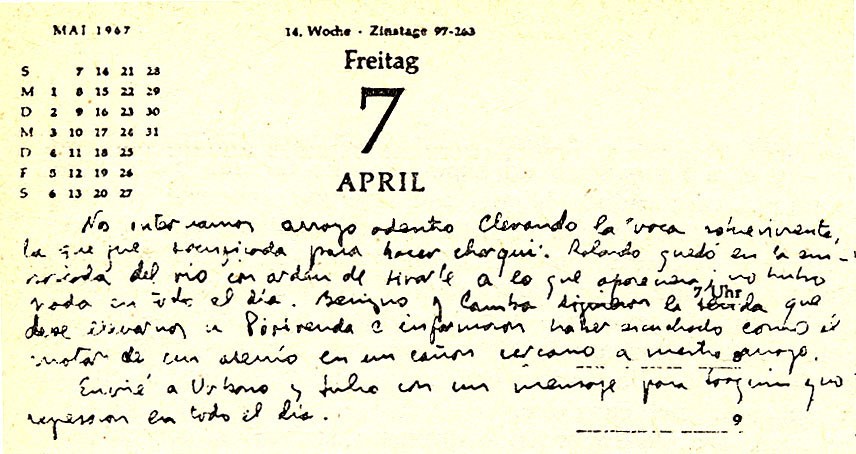 MAI 1967
14. Woche · Zinstage 97-263
Freitag
7
APRIL
S 7 14 21 28
M 1 8 15 22 29
D 2 9 16 23 30
M 3 10 17 24 31
D 4 11 18 25
F 5 12 19 26
S 6 13 20 27
Nos internamos arroyo adentro llevando la vaca sobreviviente,
la que fue sacrificada para hacer charqui. Rolando quedó en la em-
boscada del río con orden de tirarle a lo que apareciera; no hubo
nada en todo el día. Benigno y Camba siguieron la senda que
7 Uhr
debe llevarnos a Piririenda e informaron haber escuchado como el
motor de un aserrío en un cañón cercano a nuestro arroyo.
Envié a Urbano y Julio con un mensaje para Joaquín y no
regresaron en todo el día.
9